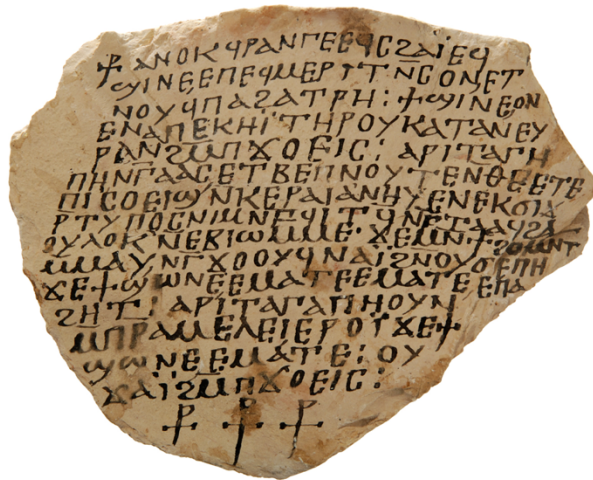 ⳨ⲁⲛⲟⲕϥⲣⲁⲛⲅⲉⲉϥⲥϩⲁⲓⲉϥ
ϣⲓⲛⲉⲉⲡⲉϥⲙⲉⲣⲓⲧⲛⲥⲟⲛⲉⲧ
ⲛⲟⲩϥⲡⲁϩⲁⲧⲣⲏ : ϯϣⲓⲛⲉⲟⲛ
ⲉⲛⲁⲡⲉⲕⲏⲓⲧⲏⲣⲟⲩⲕⲁⲧⲁⲛⲉⲩ
ⲣⲁⲛϩⲙ̅ⲡϫⲟⲉⲓⲥ : ⲁⲣⲓⲧⲁⲅⲏ
ⲡⲏⲛⲅ̅ⲁⲁⲥⲉⲧⲃⲉⲡⲛⲟⲩⲧⲉⲛⲑⲉⲉⲧⲉ
ⲡⲓⲥⲟⲉⲓϣⲛⲕⲉⲣⲁⲓⲁⲛⲏⲩⲉⲛⲉⲕⲥⲓⲁ
ⲣⲧⲩⲡⲟⲥⲛⲓⲙⲛⲅϥⲓⲧϥⲛⲅⲧⲁⲁϥϩⲁ
ⲟⲩⲗⲟⲕⲛ̅ⲉⲃⲓⲱⲙⲙⲉ· ϫⲉⲙⲛ̅ϯϩⲟⲙⲛⲧ
ⲙⲙⲁⲩⲛⲅ̅ϫⲟⲟⲩϥⲛⲁⲓϩⲛⲟⲩϭⲉⲡⲏ
ϫⲉϯϣⲱⲛⲉⲉⲙⲁⲧⲉⲉⲙⲁⲧⲉⲉⲡⲁ
ϩⲏⲧ : ⲁⲣⲓⲧⲁⲅⲁⲡⲏⲟⲩⲛ
ⲙ̅ⲡⲣⲁⲙⲉⲗⲉⲓⲉⲣⲟⲓ̈ϫⲉϯ
ϣⲱⲛⲉⲉⲙⲁⲧⲉ : ⲟⲩ
ϫⲁⲓϩⲙ̅ⲡϫⲟⲉⲓⲥ :
⳨ ⳨ ⳨